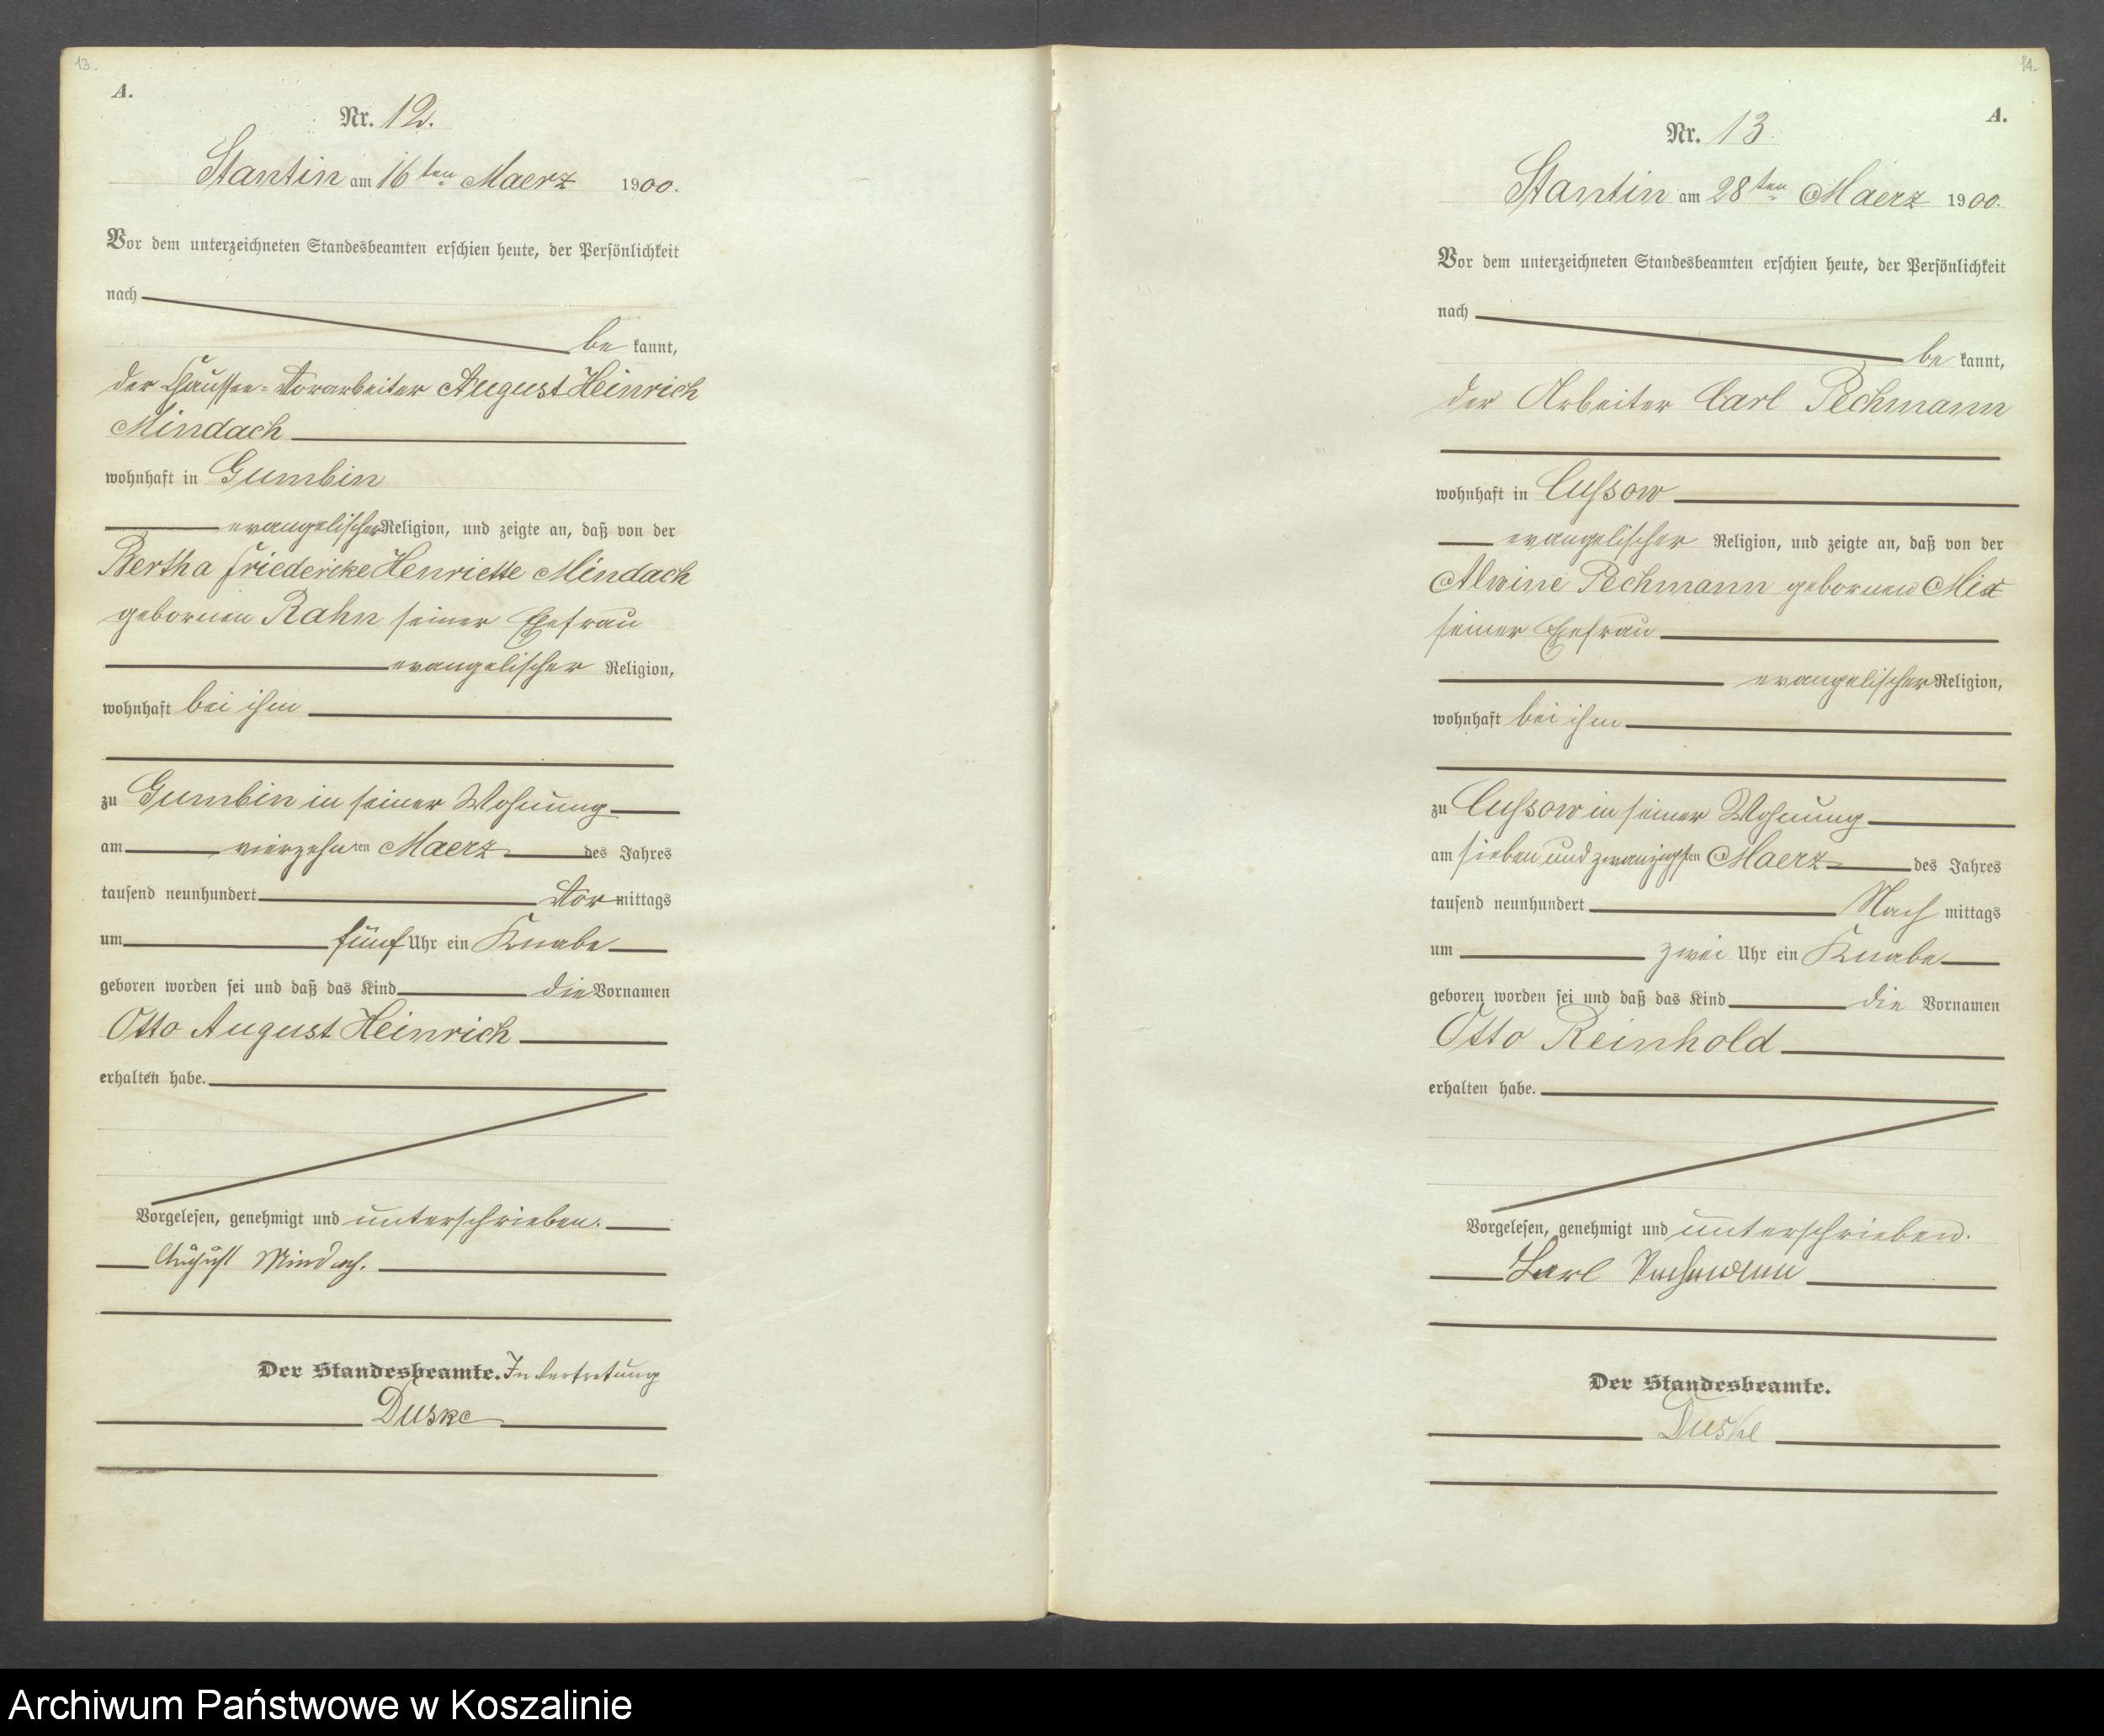 13.
A.
Nr. 12.
Stantin am 16ten Maerz 1900.
Vor dem unterzeichneten Standesbeamten erschien heute, der Persönlichkeit
nach
be kannt,
der Chaussee-Vorarbeiter August Heinrich
Mindach
wohnhaft in Gumbin
evangelischer Religion, und zeigte an, daß von der
Bertha Friedericke Henriette Mindach
gebornen Rahn seiner Ehefrau
evangelischer Religion,
wohnhaft bei ihm
zu Gumbin in seiner Wohnung
am vierzehnten Maerz des Jahres
tausend neunhundert Vor mittags
um fünf Uhr ein Knabe
geboren worden sei und daß das Kind die Vornamen
Otto August Heinrich
erhalten habe.
Vorgelesen, genehmigt und unterschrieben.
August Mindach.
Der Standesbeamte. In Vertretung
Duske
14.
A.
Nr. 13
Stantin am 28ten Maerz 1900.
Vor dem unterzeichneten Standesbeamten erschien heute, der Persönlichkeit
nach
be kannt,
der Arbeiter Carl Pechmann
wohnhaft in Cussow
evangelischer Religion, und zeigte an, daß von der
Alwine Pechmann gebornen Mix
seiner Ehefrau
evangelischer Religion,
wohnhaft bei ihm
zu Cussow in seiner Wohnung
am sieben und zwanzigsten Maerz des Jahres
tausend neunhundert Nach mittags
um zwei Uhr ein Knabe
geboren worden sei und daß das Kind die Vornamen
Otto Reinhold
erhalten habe.
Vorgelesen, genehmigt und unterschrieben.
Carl Pechmann
Der Standesbeamte.
Duske
Archiwum Państwowe w Koszalinie